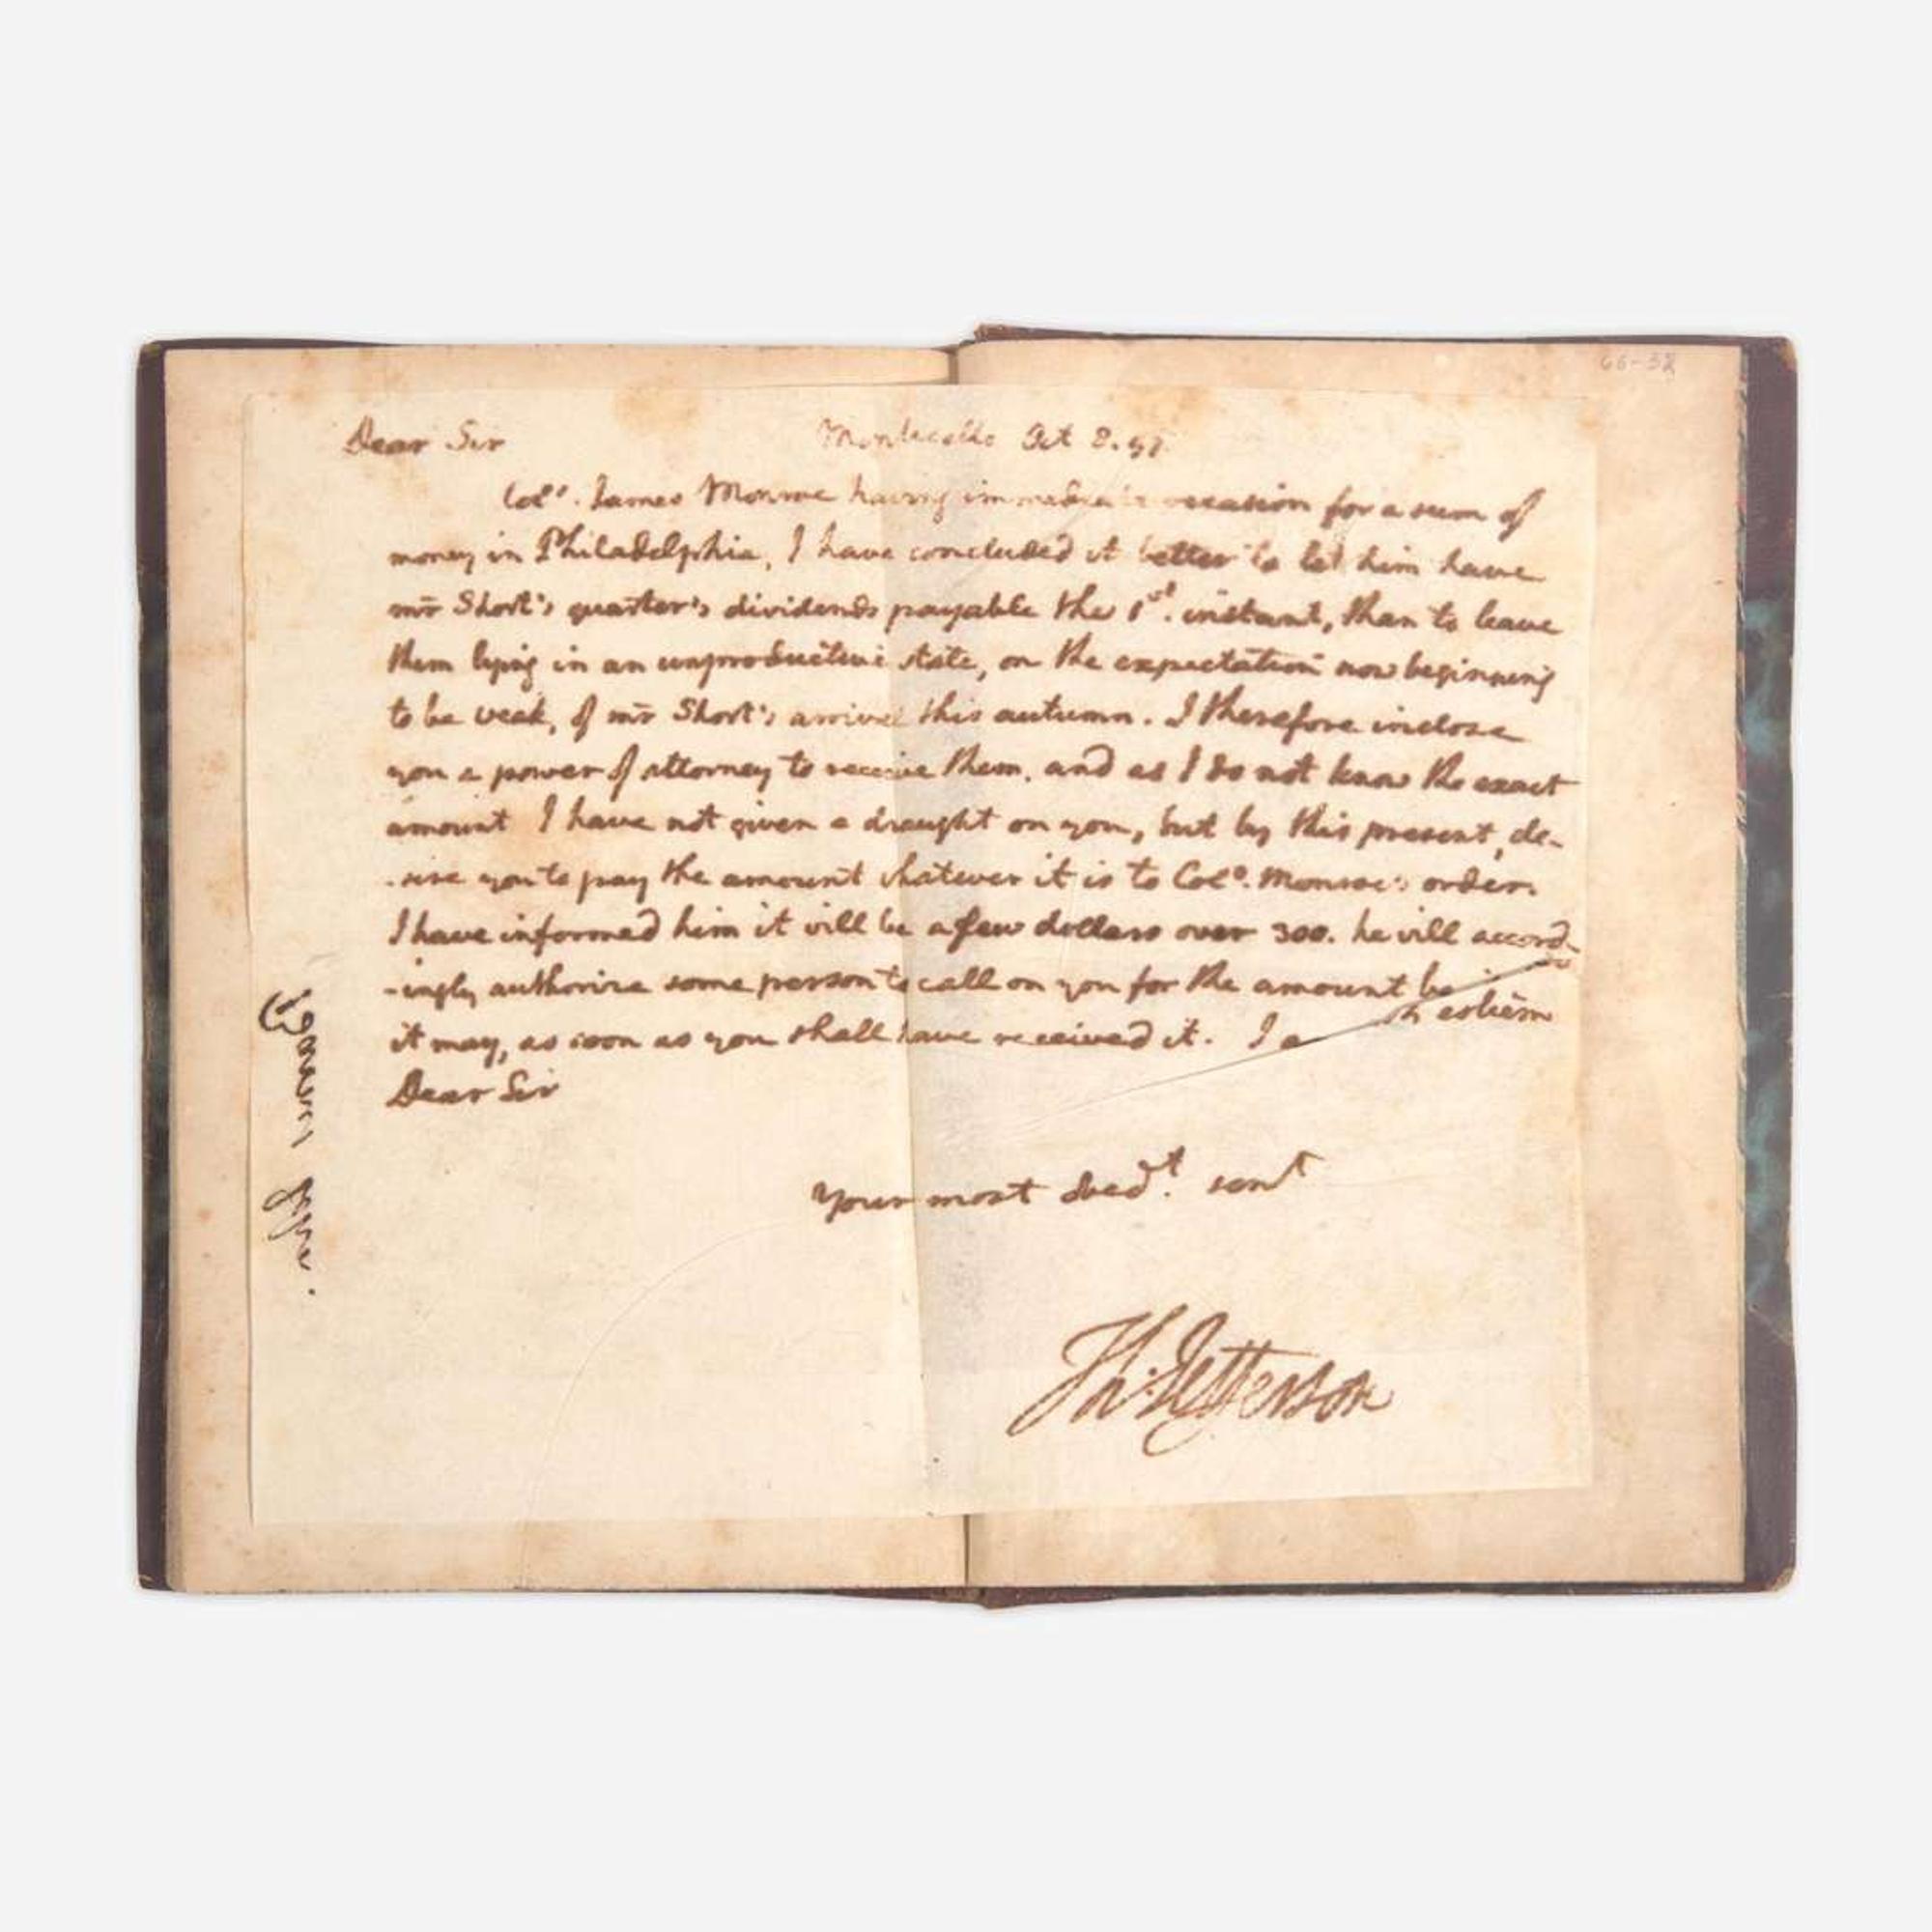 66-38
Dear Sir Monticello Oct 8. 97
Colo. James Monroe having immediate occasion for a sum of
money in Philadelphia, I have concluded it better to let him have
mr Short's quarter's dividends payable the 1st. instant, than to leave
them lying in an unproductive state, on the expectation now beginning
to be weak, of mr Short's arrival this autumn. I therefore inclose
you a power of attorney to receive them. and as I do not know the exact
amount I have not given a draught on you, but by this present, de-
-sire you to pay the amount whatever it is to Colo. Monroe's order.
I have informed him it will be a few dollars over 300. he will accord-
-ingly authorize some person to call on you for the amount be
it may, as soon as you shall have received it. I a esteem
Dear Sir
Your most obedt. servt
Th: Jefferson